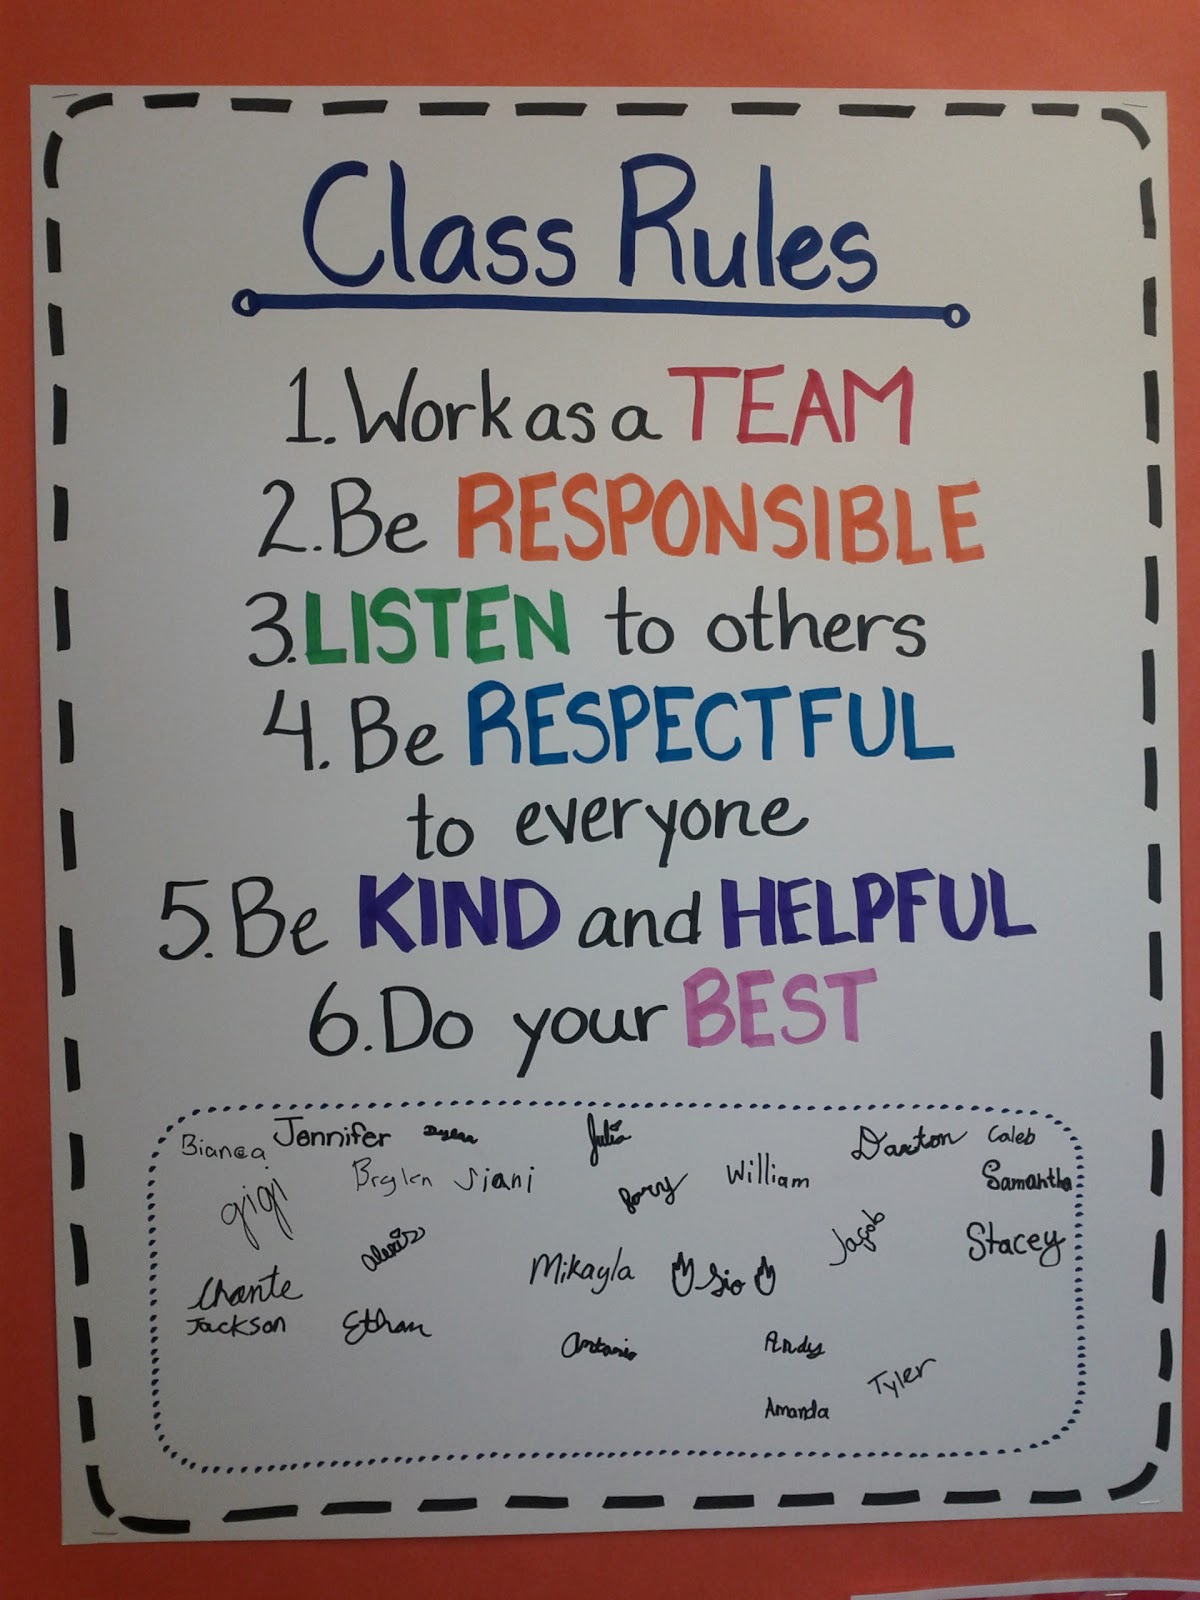 Class Rules
1. Work as a TEAM
2. Be RESPONSIBLE
3. LISTEN to others
4. Be RESPECTFUL
to everyone
5. Be KIND and HELPFUL
6. Do your BEST
Bianca Jennifer Julia Daxton Caleb
gigi Siani William Samantha
Alexis Mikayla Sio Jacob Stacey
Chante
Jackson Ethan Antonio Andy
Tyler
Amanda